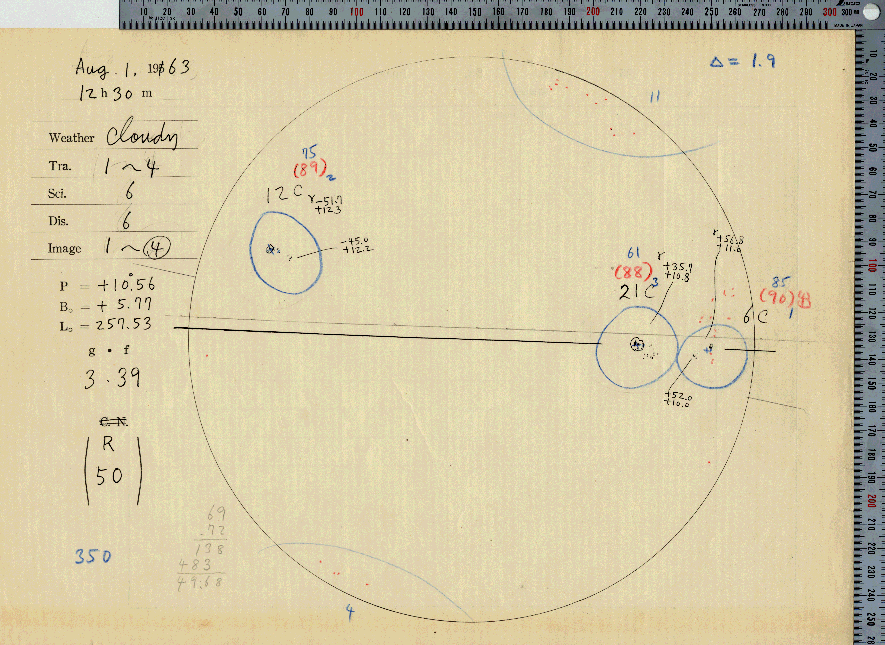 Aug. 1. 1963
12 h 30 m
Weather cloudy
Tra. 1 ~ 4
Sci. 6
Dis. 6
Image 1 ~ 4
P = +10°.56
B₀ = + 5.77
L₀ = 257.53
g • f
3 • 39
C. N.
R
50
350
69
.72
138
483
49.68
Δ = 1.9
11
75
(89)
2
12 C
γ -51.7
+12.3
-45.0
+12.2
61
(88)
3
21 C
γ
+35.7
+10.8
γ
+56.8
+11.6
85
(90)
1
6 C
+52.0
+10.0
4